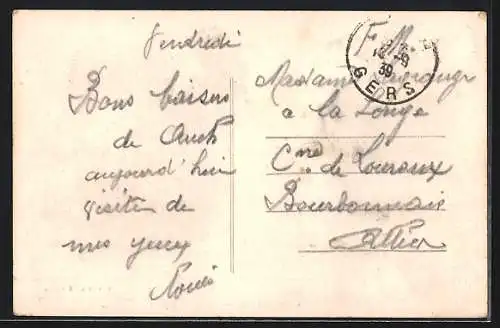 Vendredi
Bons baisers
de Auch
aujourd'hui
visite de
mes yeux
Louis
F.M.
39
GERS
Madame
a la Longe
Cne de Louroux
Bourbonnais
Allier